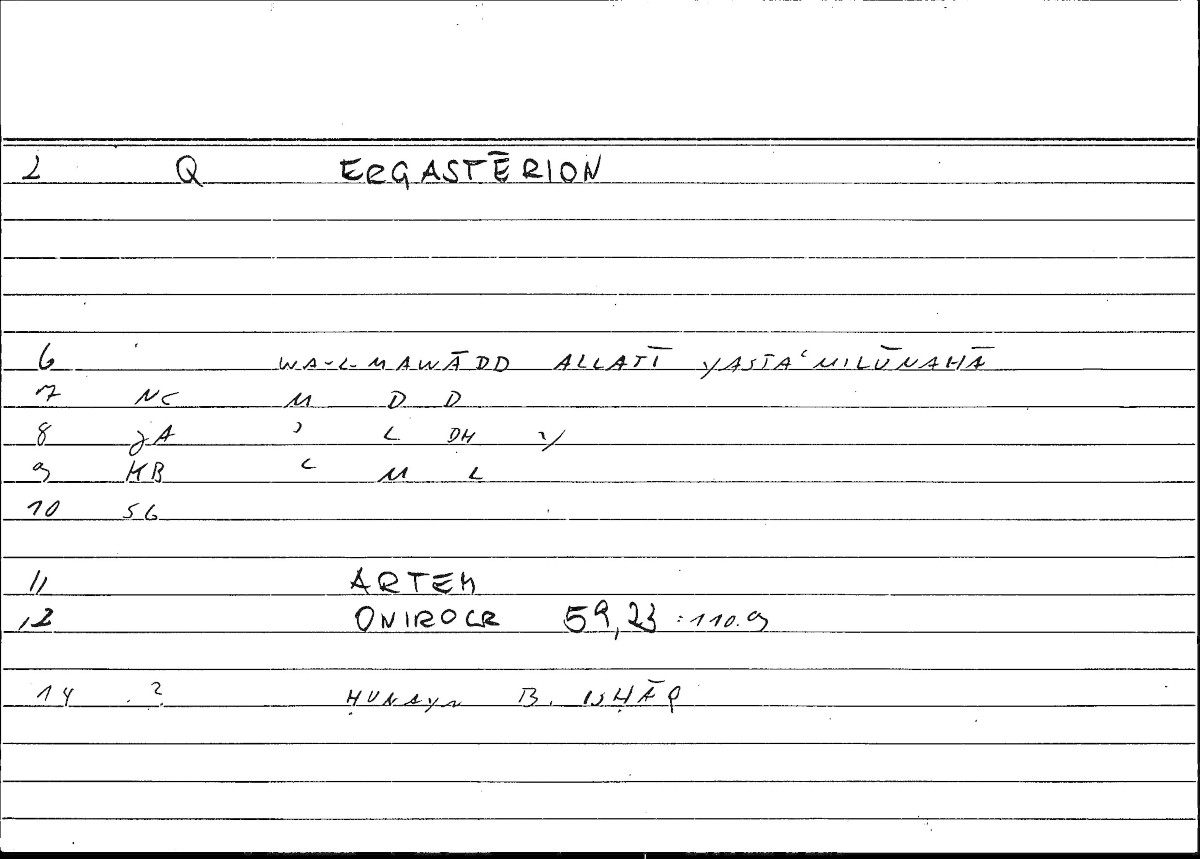 2 Q ERGASTĒRION
6 WA-L-MAWĀDD ALLATĪ YASTAʿMILŪNAHĀ
7 NC M D D
8 JA ʾ L DH Y
9 KB ʿ M L
10 SG
11 ARTEM
12 ONIROCR 59,23 : 110.9
14 ? ḤUNAYN B. ISḤĀQ